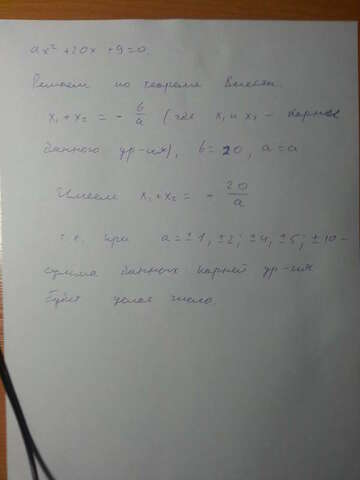 ax² + 20x + 9 = 0.
Решаем по теореме Виета.
x₁ + x₂ = - b/a (где x₁ и x₂ - корни
данного ур-ия), b = 20, a = a
Имеем x₁ + x₂ = - 20/a
т.е. при a = ±1, ±2; ±4, ±5; ±10 -
сумма данных корней ур-ия
будет целое число.